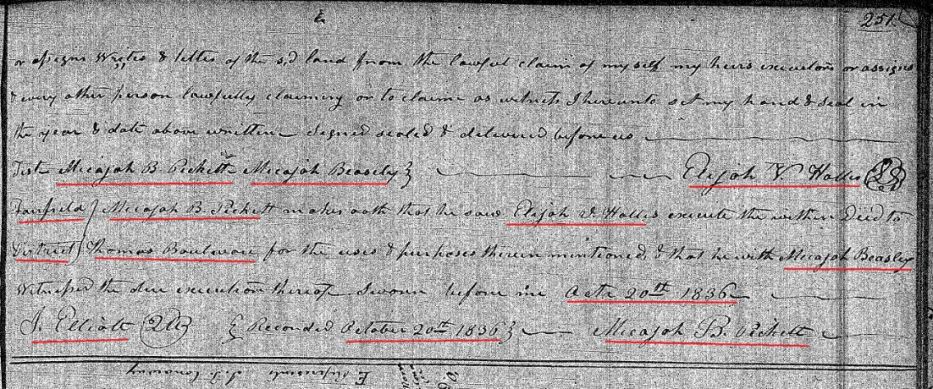 251
or assigns Writes & titles of the sd land from the lawful claim of myself my heirs executors or assigns
& every other person lawfully claiming or to claim as witness I hereunto set my hand & seal in
the year & date above written Signed sealed & delivered before us
Test Micajah B Pickett Micajah Beasley Elijah Hollis
Fairfield Micajah B. Pickett makes oath that he saw Elijah Hollis execute the within Deed to
District Thomas Boulware for the uses & purposes therein mentioned & that he with Micajah Beasley
Witnessed the due execution thereof Sworn before me Octr 20th 1836
J. Elliott Recorded October 20th 1836 Micajah B. Pickett